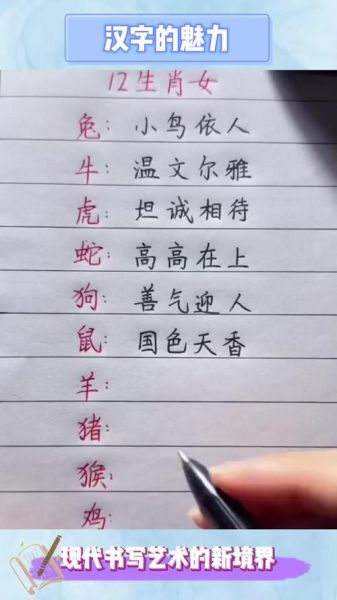 汉字的魅力
12生肖女
兔：小鸟依人
牛：温文尔雅
虎：坦诚相待
蛇：高高在上
狗：善气迎人
鼠：国色天香
羊：
猪：
猴：
鸡：
现代书写艺术的新境界